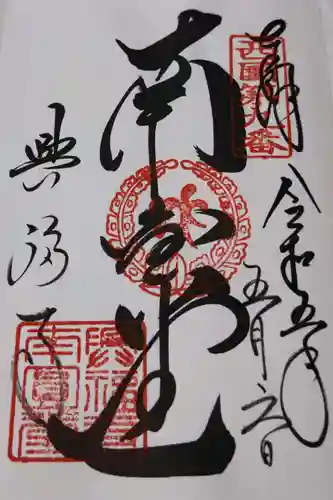 奉拝
西国第九番
令和五年
五月六日
南円堂
興福寺